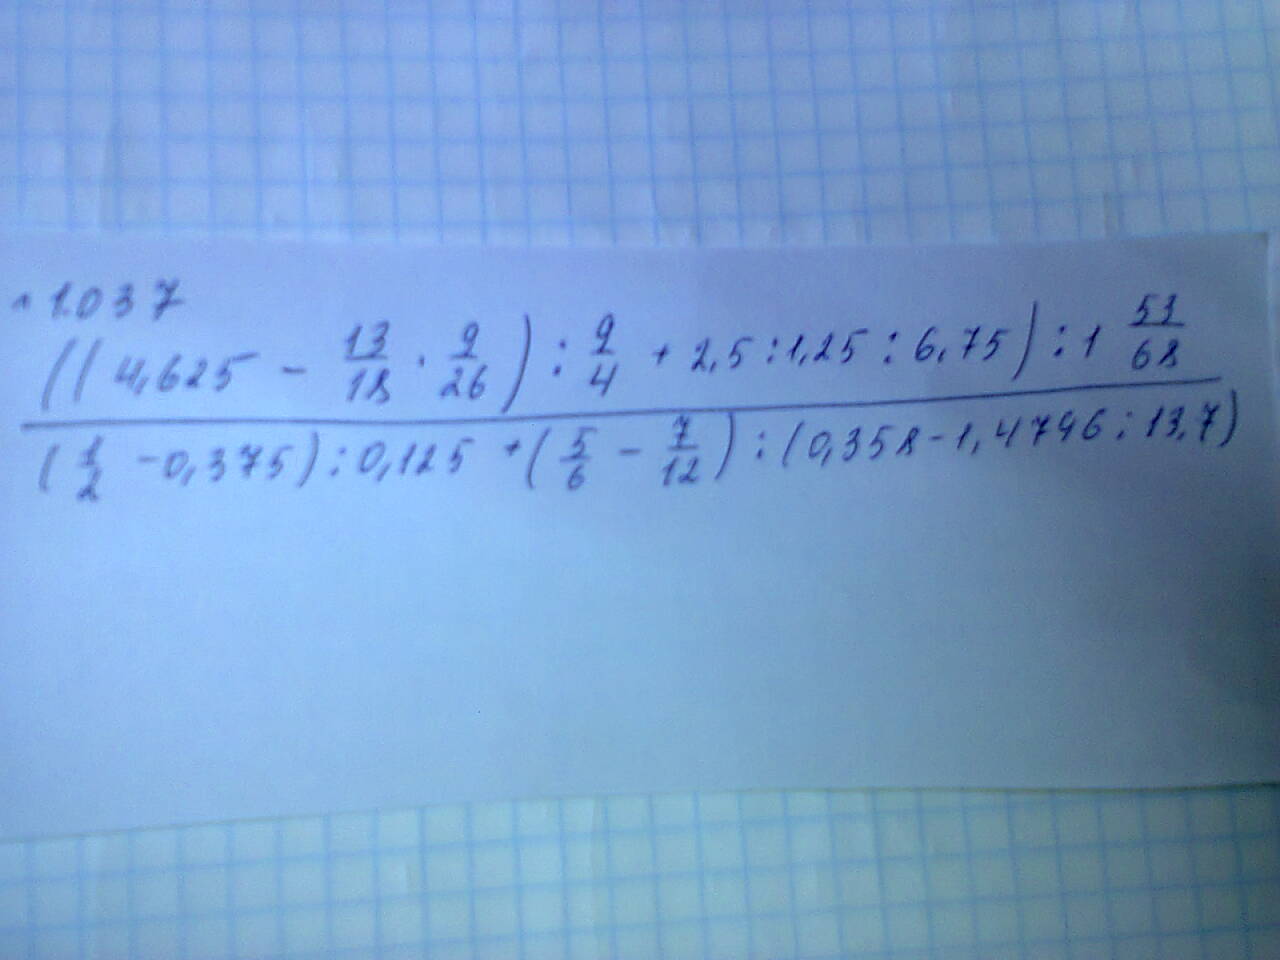 1.037
((4,625 - 13/18 · 9/26) : 9/4 + 2,5 : 1,25 : 6,75) : 1 53/68
(1/2 - 0,375) : 0,125 + (5/6 - 7/12) : (0,358 - 1,4796 : 13,7)